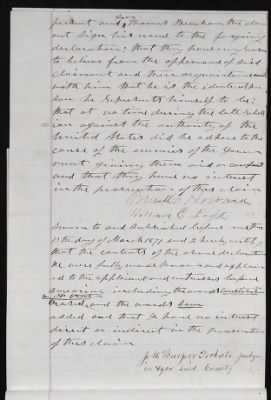 present and saw Thomas Bencham the claim
ant sign his name to the foregoing
declaration; that they have every reason
to believe from the appearance of said
claimant and their acquaintance
with him that he is the identical per
son he represents himself to be;
that at no time during the late rebel
ion against the authority of the
United States did he adhere to the
cause of the enemies of the Govern
ment giving them aid or comfort
and that they have no interest
in the prosecution of this claim
Howard
William C. Lloyd
Sworn to and subscribed before me this
13th day of March 1871 and I hereby certify
that the contents of the above declaration
&c were fully made known and explain
ed to the applicant and witnesses before
swearing including the words
erased, and the words
added and that I have no interest
direct or indirect in the prosecution
of this claim
J. H. Harper Probate Judge
in & for said County